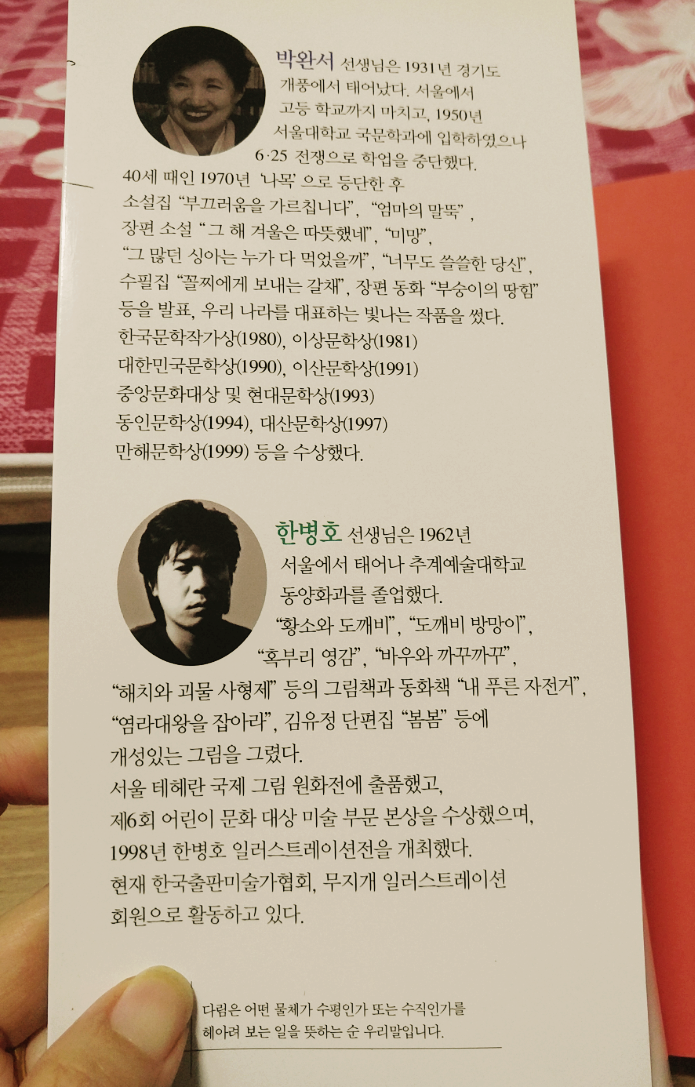 박완서 선생님은 1931년 경기도
개풍에서 태어났다. 서울에서
고등 학교까지 마치고, 1950년
서울대학교 국문학과에 입학하였으나
6·25 전쟁으로 학업을 중단했다.
40세 때인 1970년 ‘나목’으로 등단한 후
소설집 “부끄러움을 가르칩니다”, “엄마의 말뚝”,
장편 소설 “그 해 겨울은 따뜻했네”, “미망”,
“그 많던 싱아는 누가 다 먹었을까”, “너무도 쓸쓸한 당신”,
수필집 “꼴찌에게 보내는 갈채”, 장편 동화 “부숭이의 땅힘”
등을 발표, 우리 나라를 대표하는 빛나는 작품을 썼다.
한국문학작가상(1980), 이상문학상(1981)
대한민국문학상(1990), 이산문학상(1991)
중앙문화대상 및 현대문학상(1993)
동인문학상(1994), 대산문학상(1997)
만해문학상(1999) 등을 수상했다.
한병호 선생님은 1962년
서울에서 태어나 추계예술대학교
동양화과를 졸업했다.
“황소와 도깨비”, “도깨비 방망이”,
“혹부리 영감”, “바우와 까꾸까꾸”,
“해치와 괴물 사형제” 등의 그림책과 동화책 “내 푸른 자전거”,
“염라대왕을 잡아라”, 김유정 단편집 “봄봄” 등에
개성있는 그림을 그렸다.
서울 테헤란 국제 그림 원화전에 출품했고,
제6회 어린이 문화 대상 미술 부문 본상을 수상했으며,
1998년 한병호 일러스트레이션전을 개최했다.
현재 한국출판미술가협회, 무지개 일러스트레이션
회원으로 활동하고 있다.
다림은 어떤 물체가 수평인가 또는 수직인가를
헤아려 보는 일을 뜻하는 순 우리말입니다.